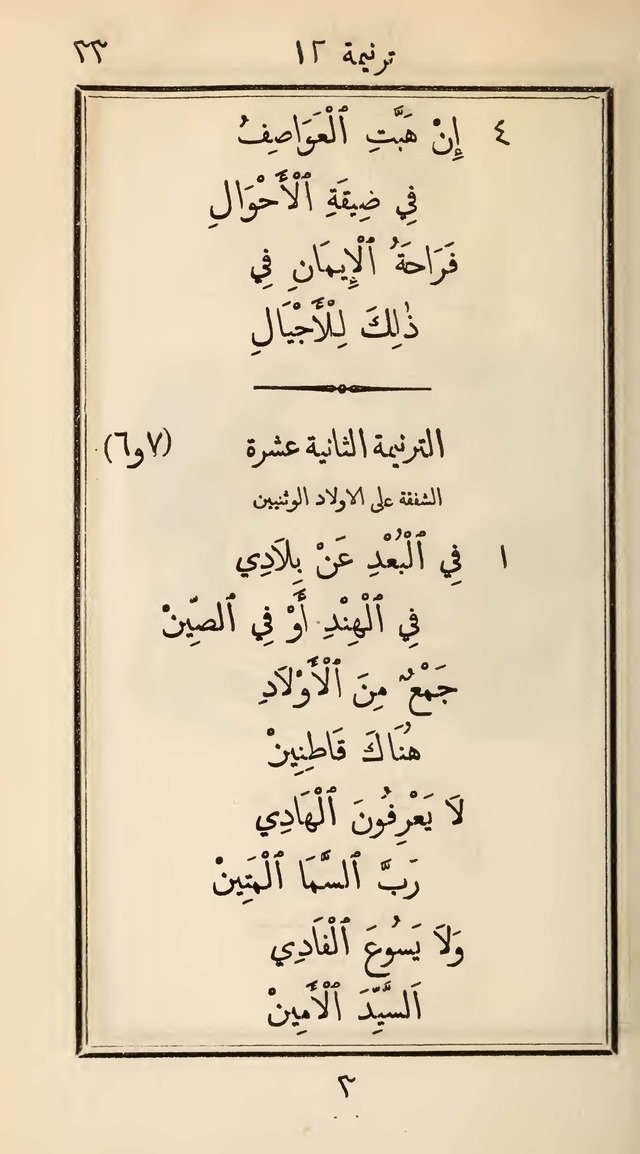 ترنيمة ١٢ ٣٣
٤ إِنْ هَبَّتِ ٱلْعَوَاصِفُ
فِي ضِيقَةِ ٱلْأَحْوَالِ
فَرَاحَةُ ٱلْإِيمَانِ فِي
ذٰلِكَ لِلْأَجْيَالِ
الترنيمة الثانية عشرة (٧ و٦).
الشفقة على الاولاد الوثنيين
١ فِي ٱلْبُعْدِ عَنْ بِلَادِي
فِي ٱلْهِنْدِ أَوْ فِي ٱلصِّينْ
جَمْعٌ مِنَ ٱلْأَوْلَادِ
هُنَاكَ قَاطِنِينْ
لَا يَعْرِفُونَ ٱلْهَادِي
رَبَّ ٱلسَّمَا ٱلْمَتِينْ
وَلَا يَسُوعَ ٱلْفَادِي
اَلسَّيِّدَ ٱلْأَمِينْ
٣